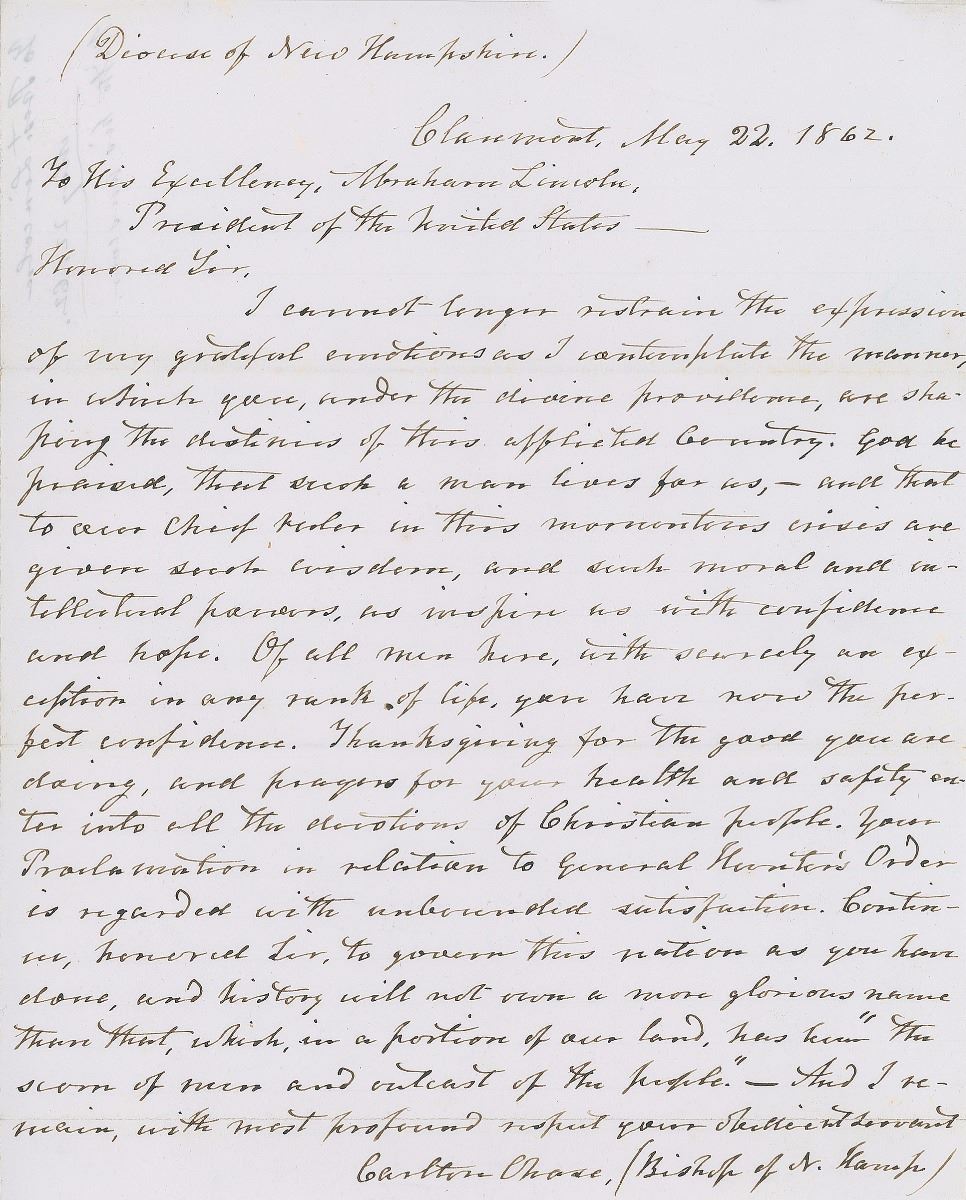 (Diocese of New Hampshire.)
Claremont, May 22. 1862.
To His Excellency, Abraham Lincoln,
President of the United States —
Honored Sir,
I cannot longer restrain the expression
of my grateful emotions as I contemplate the manner,
in which you, under the divine providence, are sha-
ping the destinies of this afflicted Country. God be
praised, that such a man lives for us, — and that
to our chief ruler in this momentous crisis are
given such wisdom, and such moral and in-
tellectual powers, as inspire us with confidence
and hope. Of all men here, with scarcely an ex-
ception in any rank of life, you have now the per-
fect confidence. Thanksgiving for the good you are
doing, and prayers for your health and safety en-
ter into all the devotions of Christian people. Your
Proclamation in relation to General Hunter's Order
is regarded with unbounded satisfaction. Contin-
ue, honored Sir, to govern this nation as you have
done, and history will not own a more glorious name
than that, which, in a portion of our land, has been "the
scorn of men and outcast of the people." — And I re-
main, with most profound respect your obedient servant
Carlton Chase, (Bishop of N. Hamp)